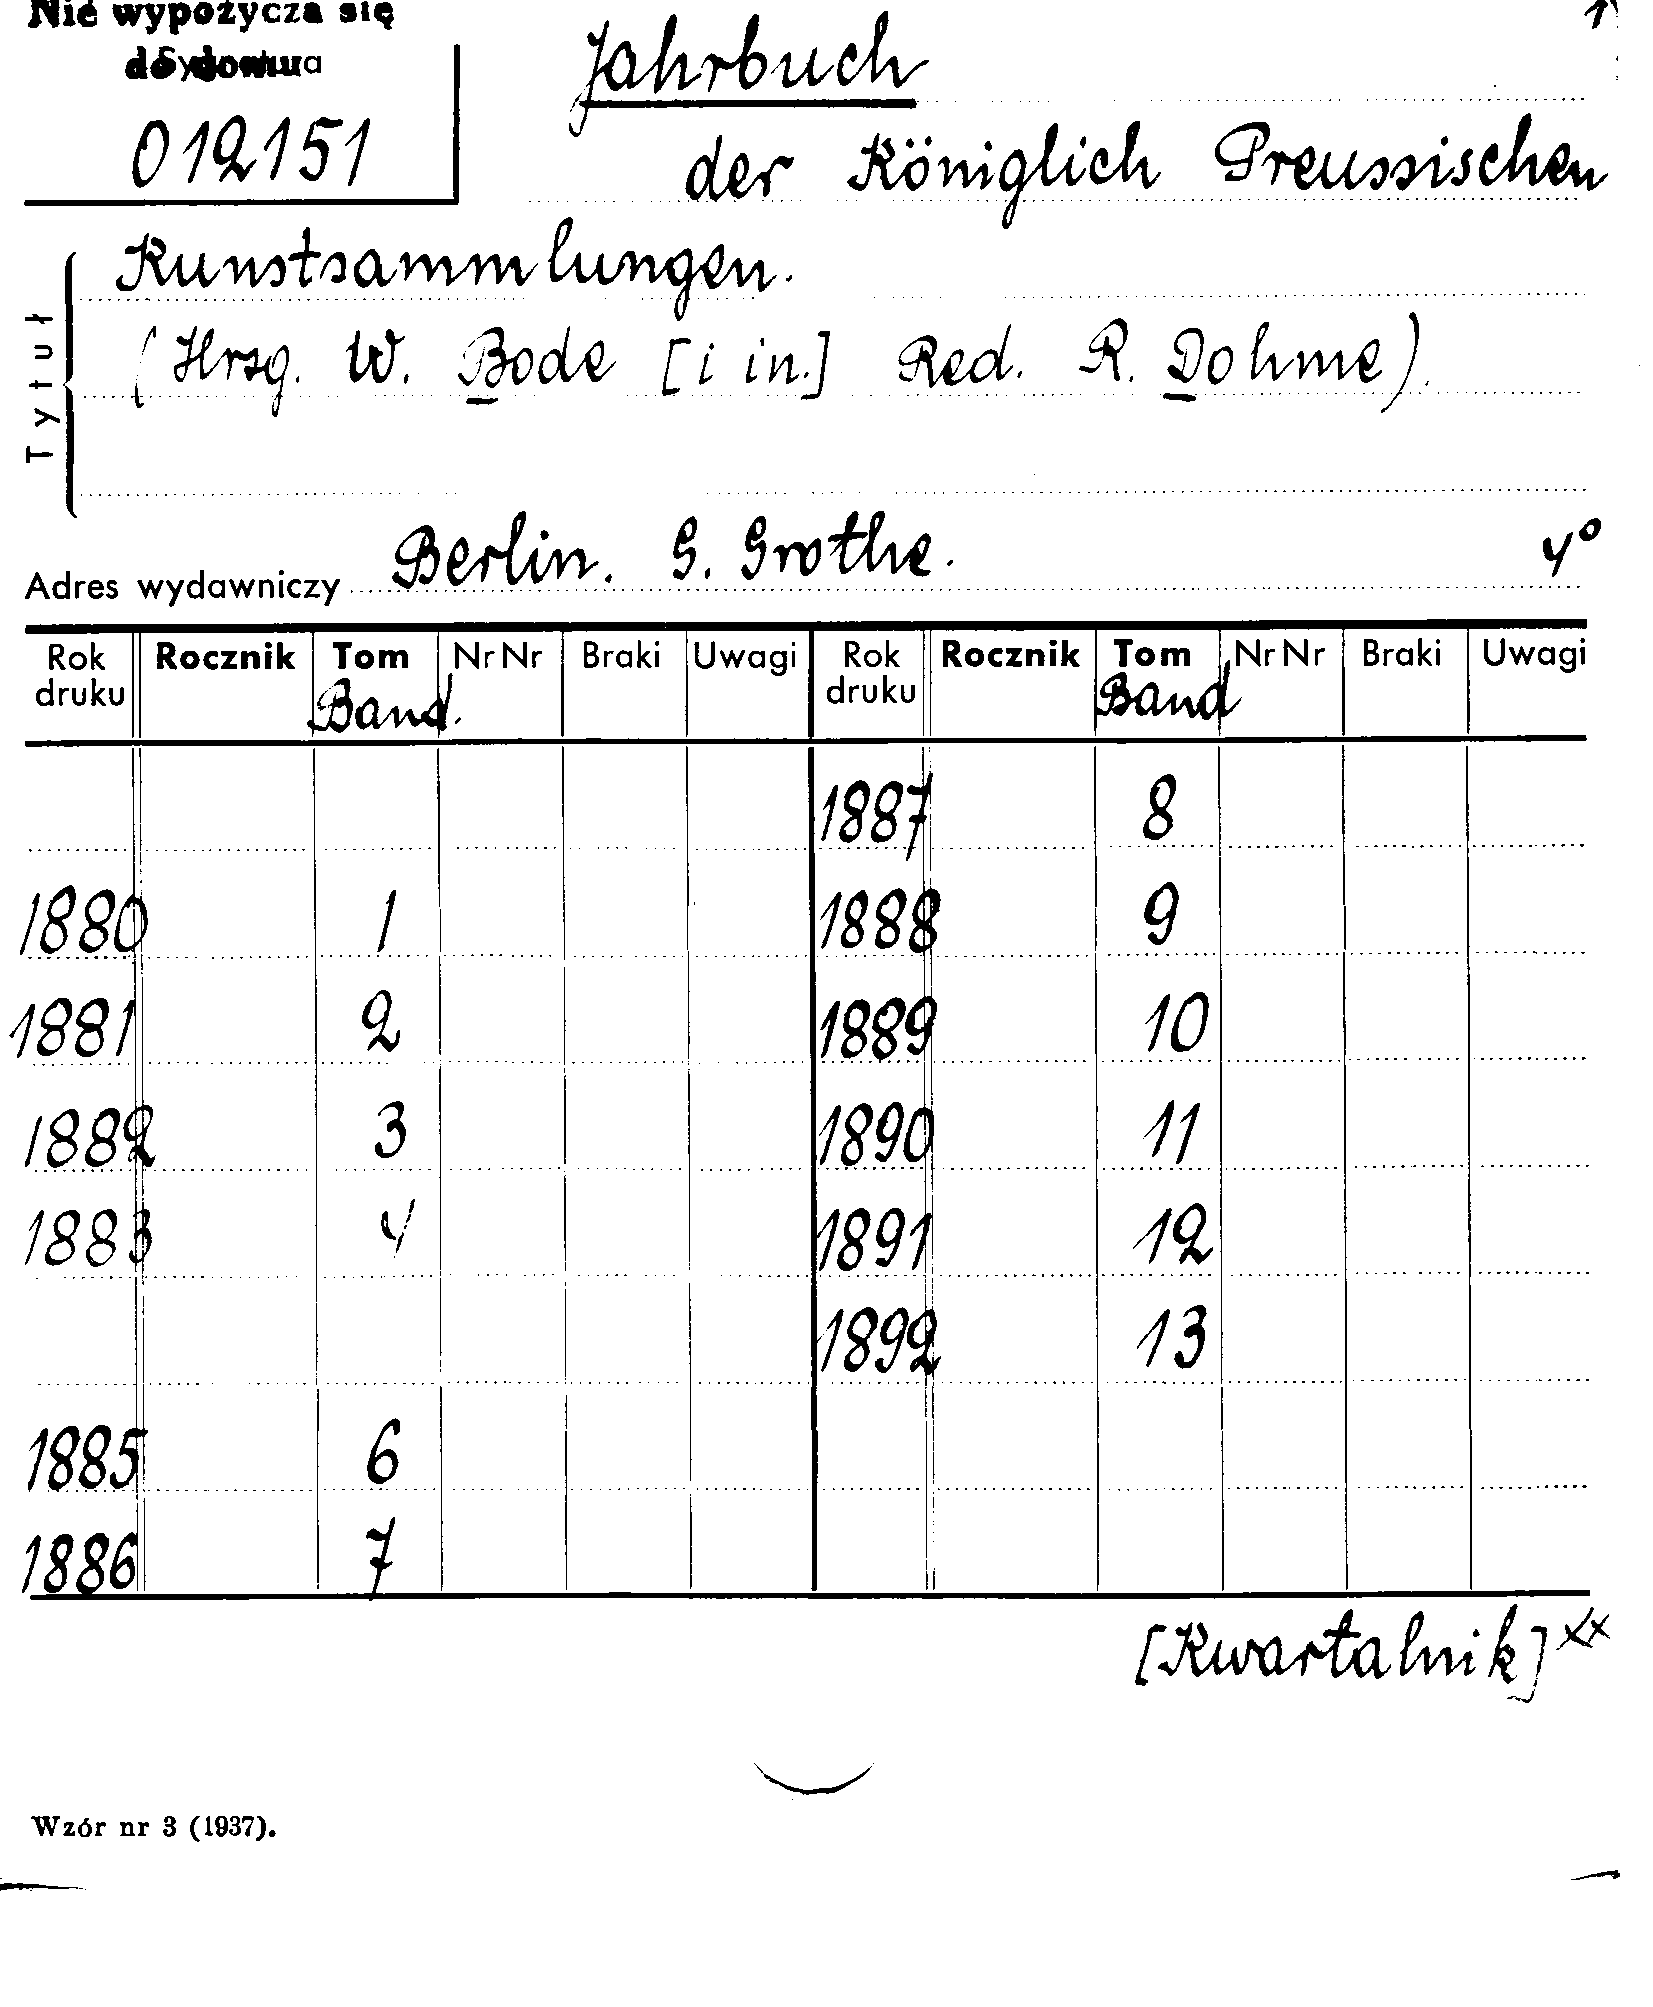 Nie wypożycza się
do domu
Sygnatura
012151
Jahrbuch
der Königlich Preussischen
Kunstsammlungen.
(Hrsg. W. Bode [i in.] Red. R. Dohme).
Tytuł
Berlin. G. Grothe. 4°
Adres wydawniczy
Rok druku Rocznik Tom Nr Nr Braki Uwagi Rok druku Rocznik Tom Nr Nr Braki Uwagi
Band. Band
1887 8
1880 1 1888 9
1881 2 1889 10
1882 3 1890 11
1883 4 1891 12
1892 13
1885 6
1886 7
[Kwartalnik] xx
Wzór nr 3 (1937).